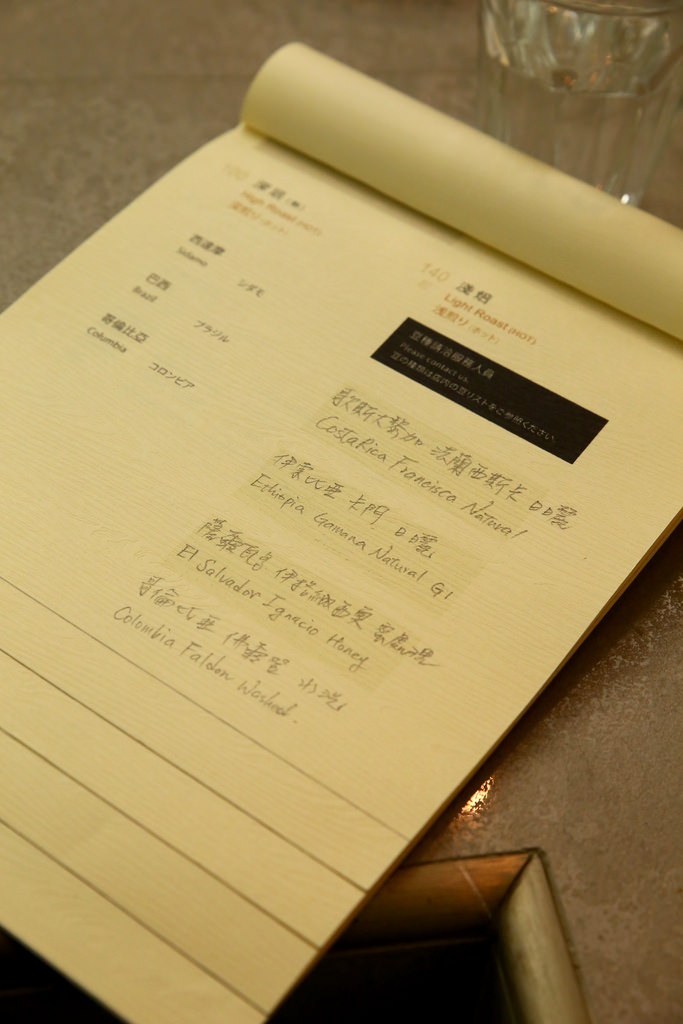 100 深焙(熱)
High Roast(HOT)
深煎り(ホット)
西達摩
Sidamo シダモ
巴西
Brazil ブラジル
哥倫比亞
Columbia コロンビア
140 淺焙
Light Roast(HOT)
浅煎り(ホット)
豆種請洽服務人員
Please contact us.
豆の種類は店内の豆リストをご参照ください。
哥斯大黎加 法蘭西斯卡 日曬
CostaRica Francisca Natural
伊索比亞 卡門 日曬
Ethiopia Gamana Natural G1
薩爾瓦多 蜜處理
El Salvador Ignacio Honey
哥倫比亞 水洗
Colombia Faldon Washed.